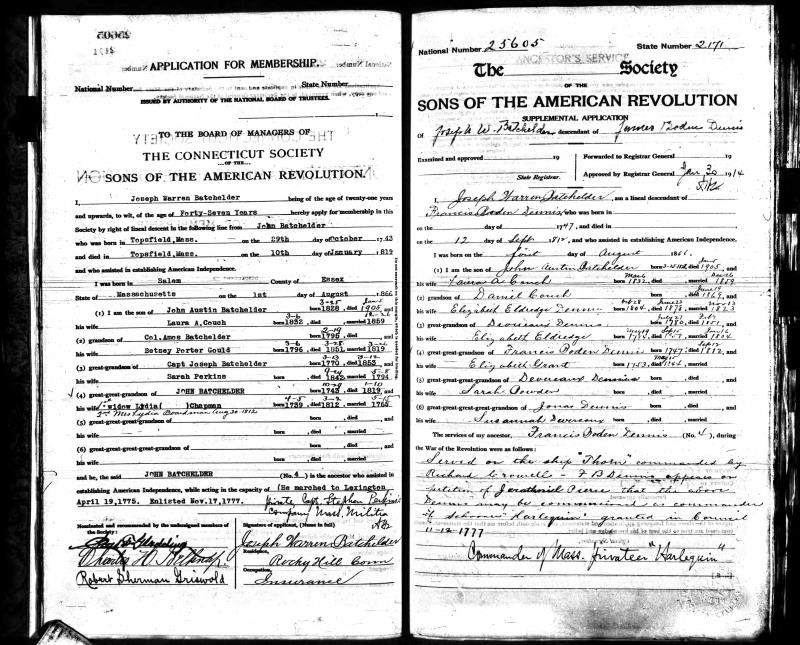 APPLICATION FOR MEMBERSHIP.
National Number State Number
ISSUED BY AUTHORITY OF THE NATIONAL BOARD OF TRUSTEES.
TO THE BOARD OF MANAGERS OF
THE CONNECTICUT SOCIETY
OF THE
SONS OF THE AMERICAN REVOLUTION.
I, Joseph Warren Batchelder being of the age of twenty-one years
and upwards, to wit, of the age of Forty-Seven Years hereby apply for membership in this
Society by right of lineal descent in the following line from John Batchelder
who was born in Topsfield, Mass. on the 29th day of October 1743
and died in Topsfield, Mass. on the 10th day of January 1819
and who assisted in establishing American Independence.
I was born in Salem County of Essex
State of Massachusetts on the 1st day of August 1866
(1) I am the son of John Austin Batchelder born 3-25 1828, died Jan-5 1905, and
his wife Laura A. Couch born 3-6 1832, died married 12-26 1859
(2) grandson of Col. Amos Batchelder born 2-19 1795, died and
his wife Betsey Porter Gould born 3-6 1796, died 3-25 1851, married 1819
(3) great-grandson of Capt Joseph Batchelder born 1770, died 3-12 1853, and
his wife Sarah Perkins born died 9-24 1842, married 5-8 1794
(4) great-great-grandson of JOHN BATCHELDER born 10-29 1743, died 1-10 1819, and
his wife 1st widow Lydia ( )Chapman born 4-5 1739, died 3-2 1812, married 5-15 1765
2nd Mrs Lydia Boardman Aug 30 1812
(5) great-great-great-grandson of born , died , and
his wife born , died , married
(6) great-great-great-great-grandson of born , died , and
his wife born , died , married
and he, the said JOHN BATCHELDER (No. 4) is the ancestor who assisted in
establishing American Independence, while acting in the capacity of (He marched to Lexington
April 19, 1775. Enlisted Nov. 17, 1777. Private Capt. Stephen Perkins
Company Mass. Militia
Nominated and recommended by the undersigned members of the Society:
Signature of applicant, (Name in full)
Joseph Warren Batchelder
Residence,
Rocky Hill Conn
Robert Sherman Griswold
Occupation,
Insurance
National Number 25605 State Number 2171
ANCESTOR'S SERVICE
The Society
OF THE
SONS OF THE AMERICAN REVOLUTION
SUPPLEMENTAL APPLICATION
Of Joseph W. Batchelder descendant of Boden Dennis
Examined and approved 19
State Registrar.
Forwarded to Registrar General 19
Approved by Registrar General Jan 30 1914
I, Joseph Warren Batchelder, am a lineal descendant of
Francis Boden Dennis who was born in
on the day of 1747 and died in
on the 12 day of Sept 1812, and who assisted in establishing American Independence.
I was born on the first day of August 1866.
(1) I am the son of John Austin Batchelder born 3-25 1828 died Jan 5 1905, and
his wife Laura A. Couch born Mar 6 1832, died married Dec 26 1859
(2) grandson of Daniel Couch born died June 14 1869, and
his wife Elizabeth Eldredge Dennis born 1804, died June 23 1878, married Nov 13 1823
(3) great-grandson of Devereux Dennis born July 27 1780, died 1851, and
his wife Elizabeth Eldredge born died married 1804
(4) great-great-grandson of Francis Boden Dennis born 1747, died Sept 12 1812, and
his wife Elizabeth Grant born 1753, died married
(5) great-great-great-grandson of Devereux Dennis born , died , and
his wife Sarah Bowden born , died , married
(6) great-great-great-great-grandson of Jonas Dennis born , died , and
his wife Susannah Devereux born , died , married
The services of my ancestor, Francis Boden Dennis (No. 4), during
the War of the Revolution were as follows:
Served on the ship "Thorn" commanded by
Richard Cowell - F B Dennis appears on
petition of Pierce that the above
Dennis may be commissioned as commander
of schooner "Harlequin" granted in Council
11-12-1777
Commander of Mass. privateer "Harlequin"